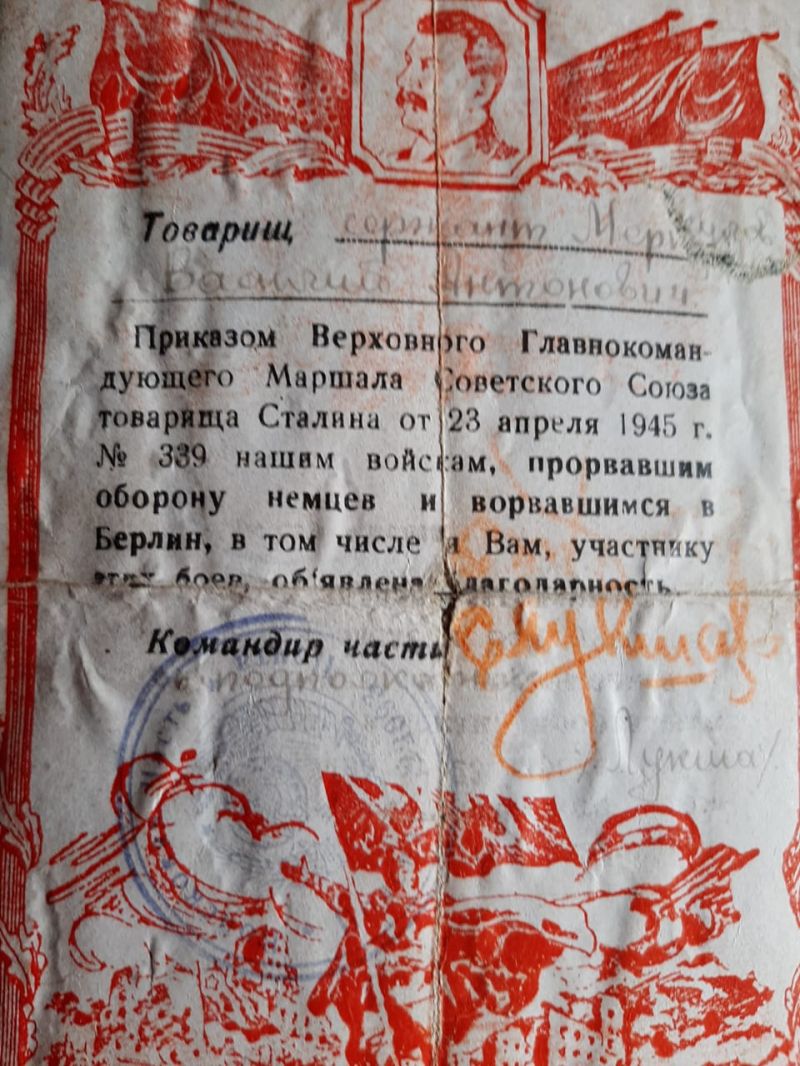 Товарищ сержант
Василий Антонович
Приказом Верховного Главнокоман-
дующего Маршала Советского Союза
товарища Сталина от 23 апреля 1945 г.
№ 339 нашим войскам, прорвавшим
оборону немцев и ворвавшимся в
Берлин, в том числе и Вам, участнику
этих боев, об'явлена благодарность.
Командир части
подполковник
/Лукша/